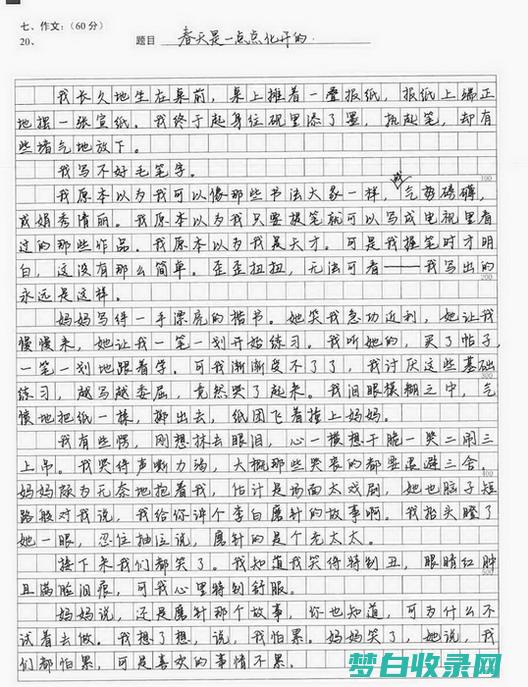 七、作文：（60分）
20、 题目 春天是一点点化开的.
我长久地坐在桌前，桌上摊着一叠报纸，报纸上端正
地摆一张宣纸。我终于起身往砚里添了墨，执起笔，却有
些堵气地放下。
我写不好毛笔字。
100
我原本以为我可以像那些书法大家一样，或气势磅礴，
或娟秀清丽。我原本以为我只要提笔就可以写成电视里看
过的那些作品。我原本以为我是天才。可是我提笔时才明
白，这没有那么简单。歪歪扭扭，无法可看——我写出的
200
永远是这样。
妈妈写得一手漂亮的楷书。她笑我急功近利，她让我
慢慢来，她让我一笔一划开始练习。我听她的，买了帖子，
一笔一划地跟着学。可我渐渐受不了了，我讨厌这些基础
300
练习，越写越委屈，竟然哭了起来。我泪眼模糊之中，气
愤地把纸一揉，掷出去，纸团飞着撞上妈妈。
我有些愣，刚想抹去眼泪，心一横想干脆一哭二闹三
上吊。我哭得声嘶力竭，大概那些哭丧的都要退避三舍。
400
妈妈颇为无奈地抱着我，估计是场面太戏剧，她也脑子短
路般对我说，我给你讲个李白磨针的故事啊。我抬头瞪了
她一眼，忍住抽泣说，磨针的是个老太太。
接下来我们都笑了。我知道我笑得特别丑，眼睛红肿
500
且满脸泪痕，可我心里特别舒服。
妈妈说，还是磨针那个故事，你也知道，可为什么不
试着去做。我想了想，说，我怕累。妈妈笑了，她说，我
们都怕累，可是喜欢的事情不累。
梦白收录网